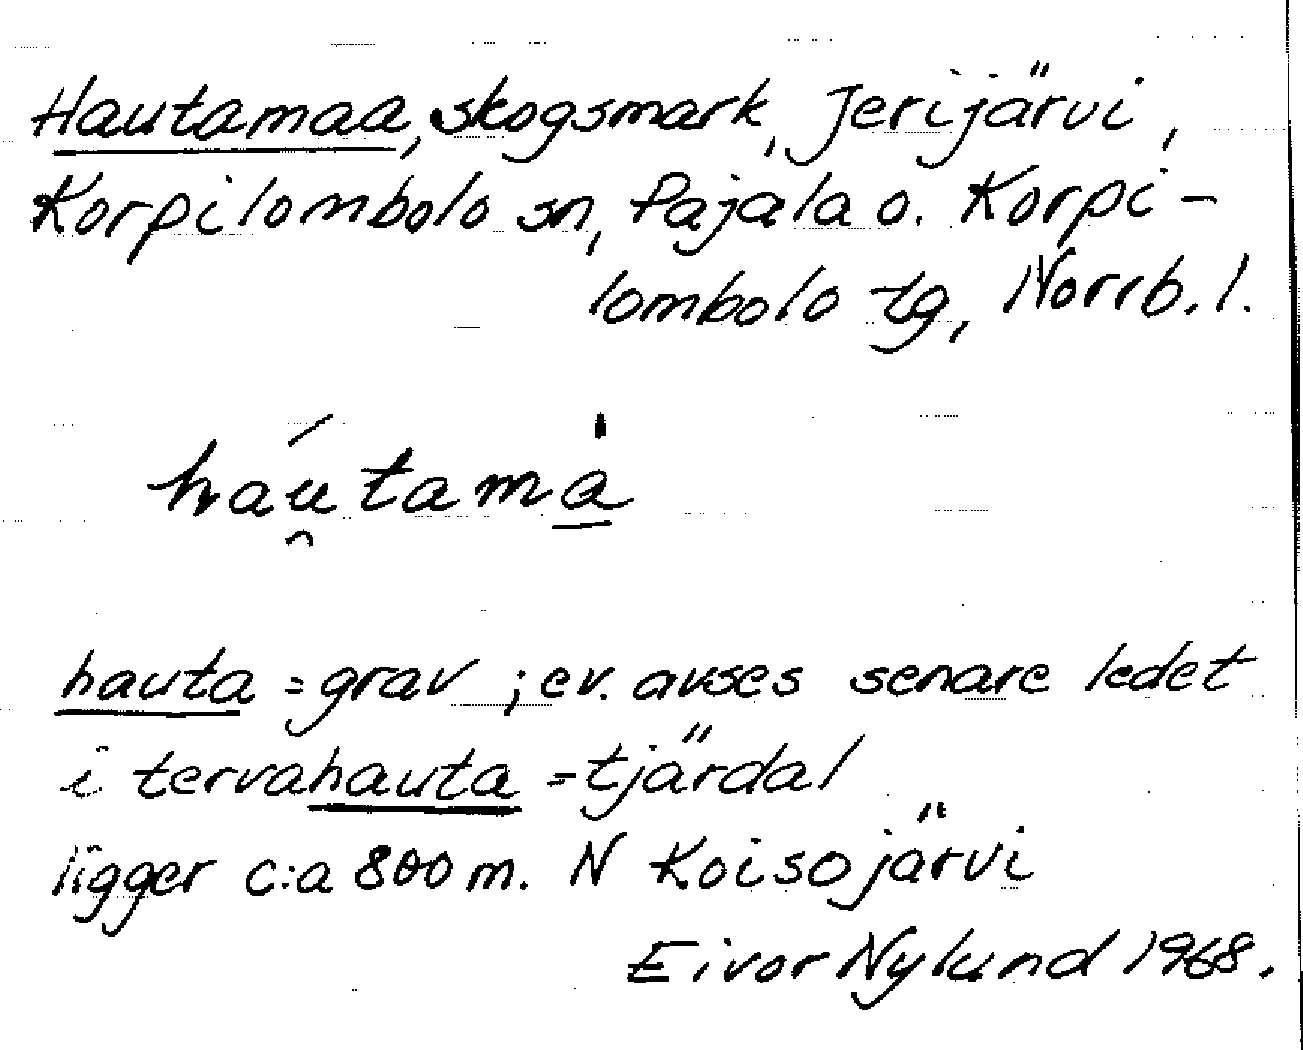 Hautamaa, skogsmark, Jerijärvi,
Korpilombolo sn, Pajala o. Korpi-
lombolo tg, Norrb. l.
háu̯tamа̱̍
hauta = grav ; ev. avses senare ledet
i tervahauta = tjärdal
ligger c:a 800 m. N Koisojärvi
Eivor Nylund 1968.